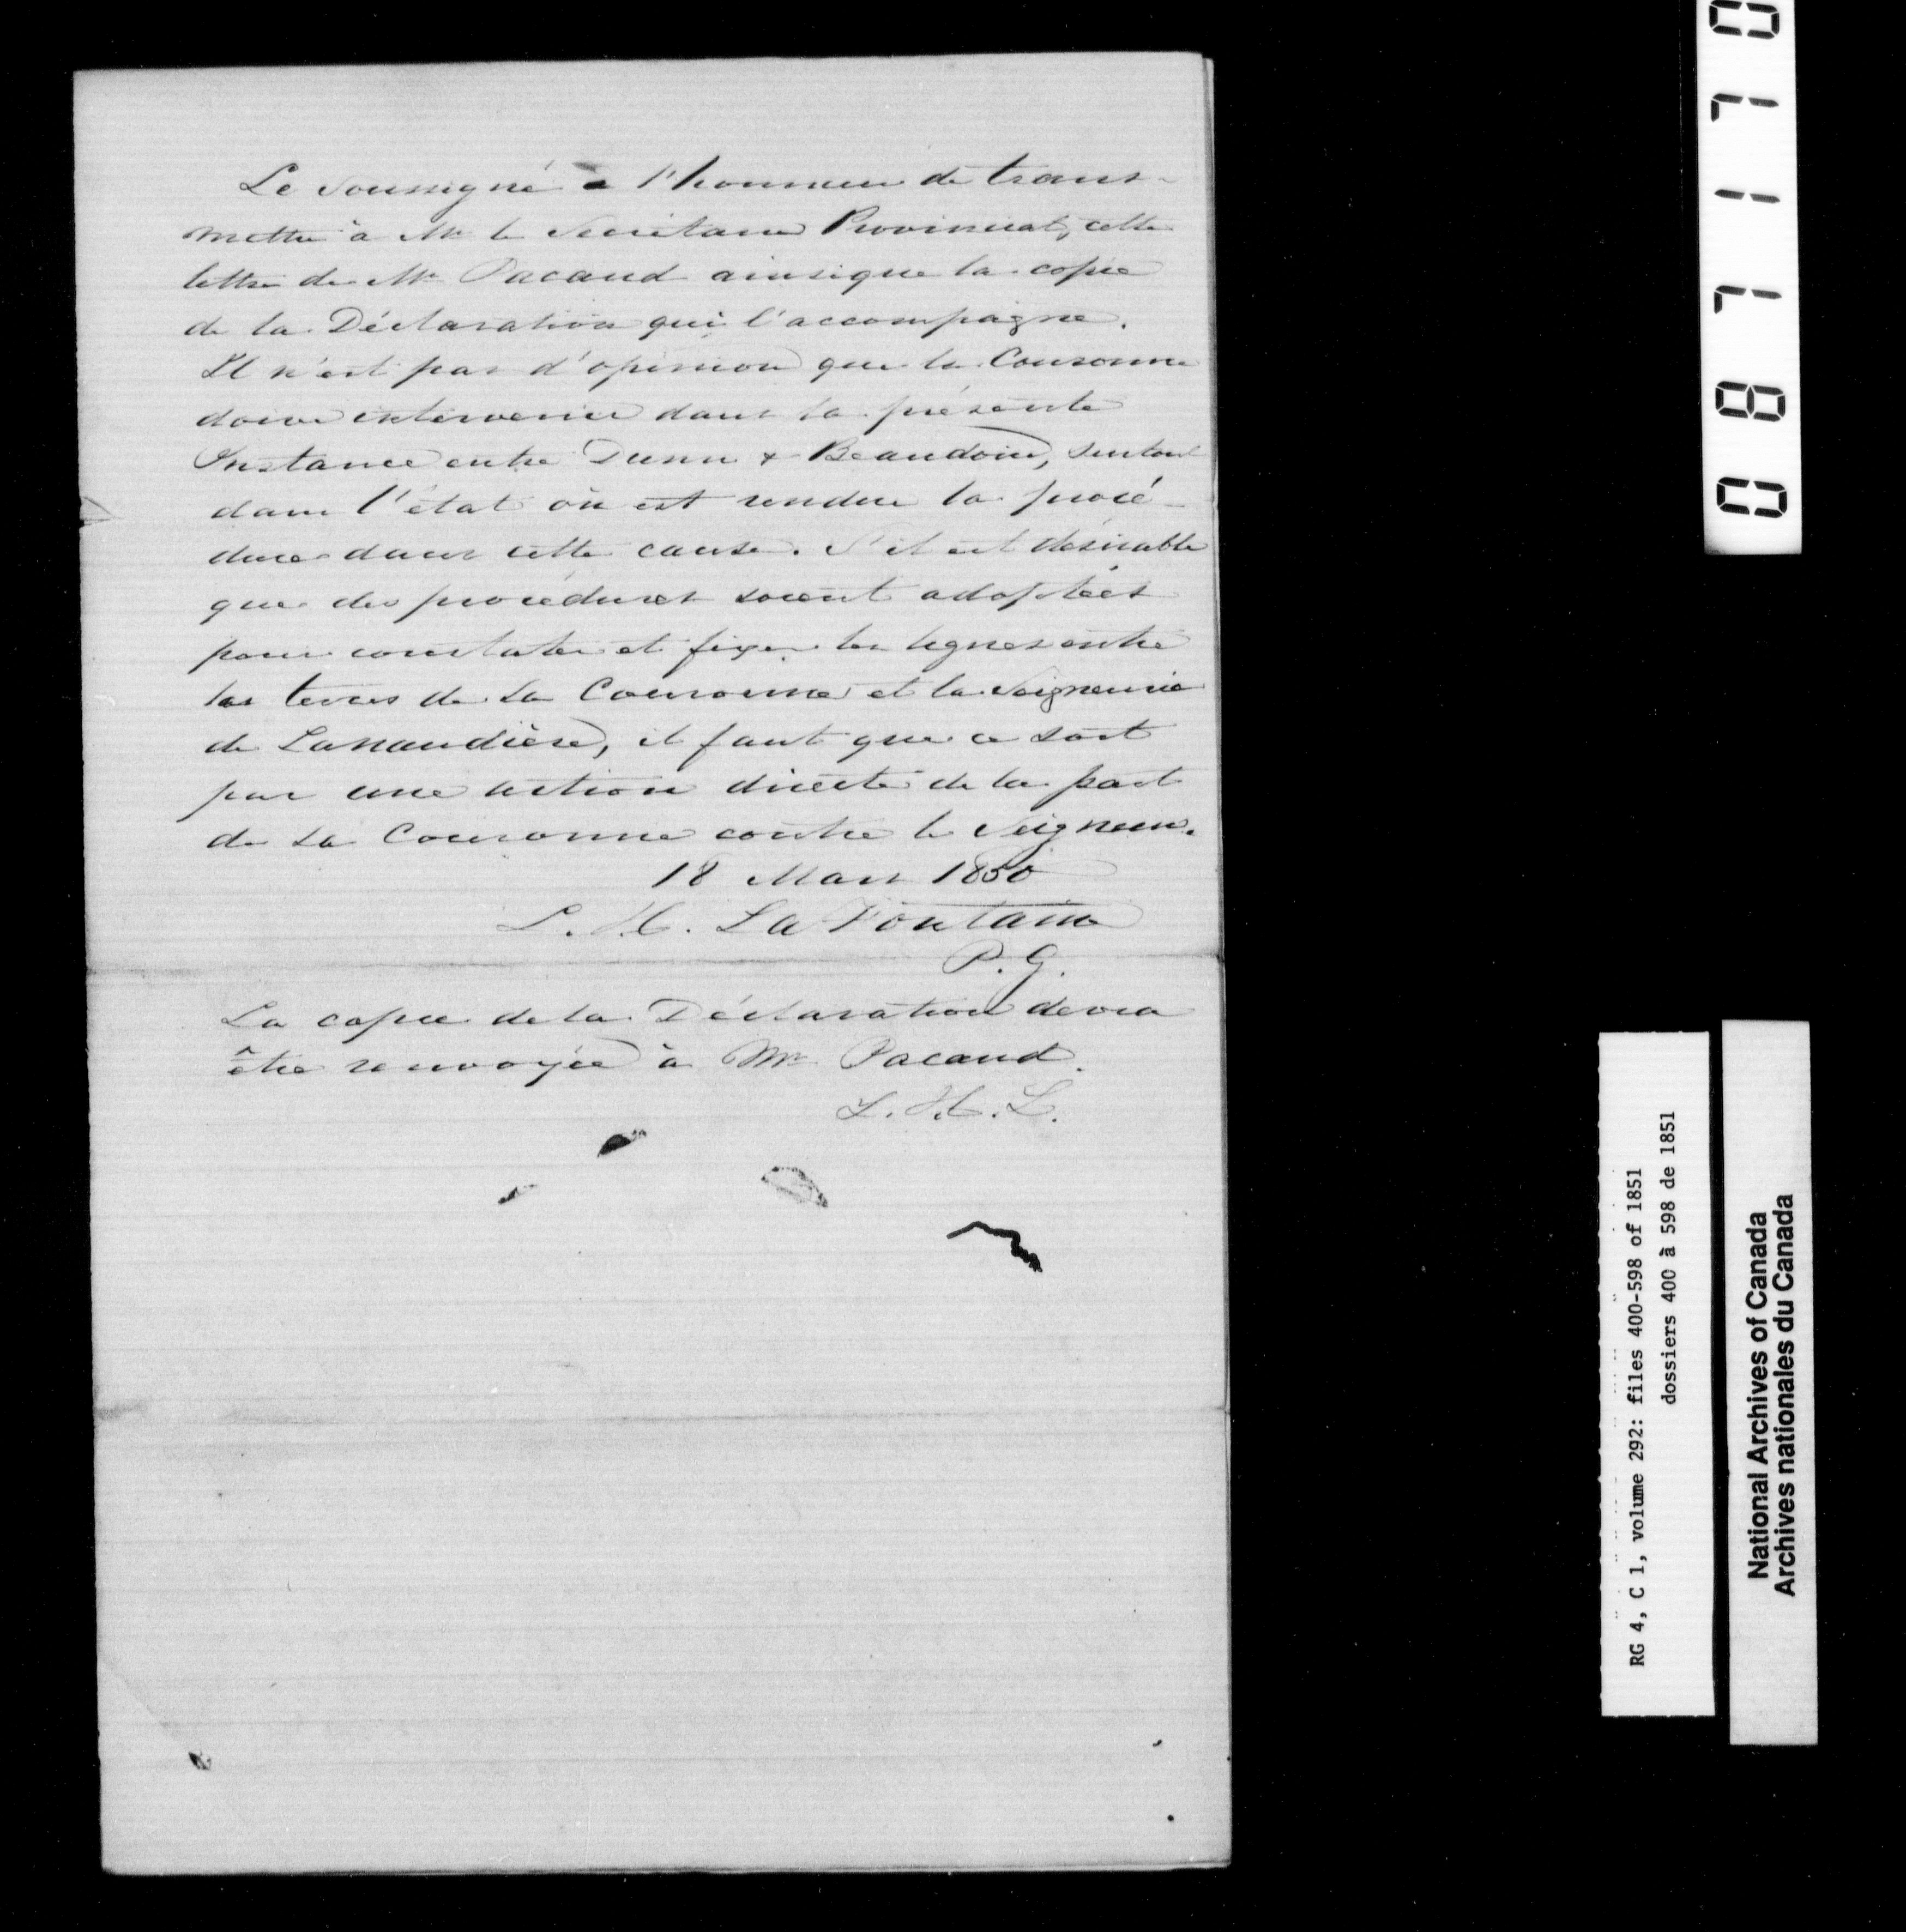 Le soussigné a l'honneur de trans-
mettre à Mr le Secrétaire Provincial, cette
lettre de Mr Pacaud ainsi que la copie
de la Déclaration qui l'accompagne.
Il n'est pas d'opinion que la Couronne
doive intervenir dans la présente
Instance entre Dunn & Beaudoin, surtout
dans l'état où est rendue la procé-
dure dans cette cause. S'il est désirable
que des procédures soient adoptées
pour constater et fixer les lignes entre
les terres de la Couronne et la Seigneurie
de Lanaudière, il faut que ce soit
par une action directe de la part
de la Couronne contre le Seigneur.
18 Mars 1850
L. H. LaFontaine
P. G.
La copie de la Déclaration devra
être renvoyée à Mr Pacaud.
L. H. L.
087170
RG 4, C 1, volume 292: files 400-598 of 1851
dossiers 400 à 598 de 1851
National Archives of Canada
Archives nationales du Canada